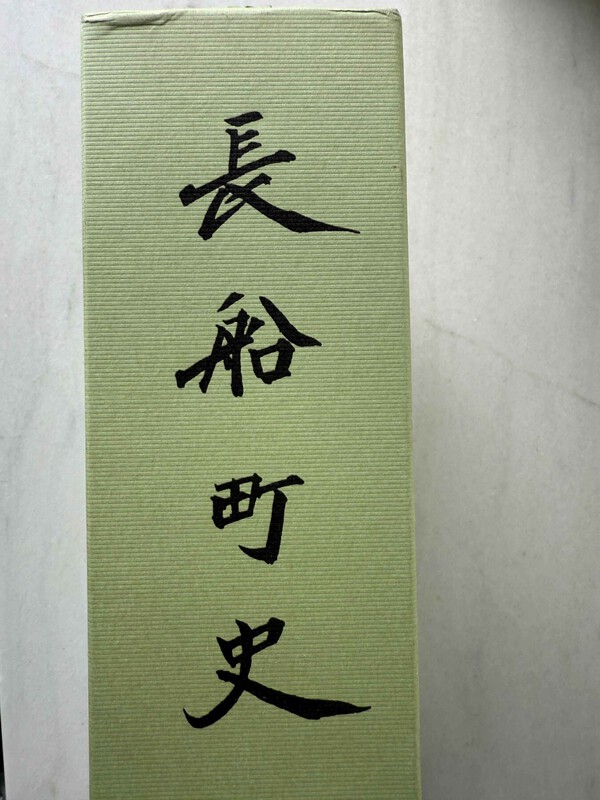 長船町史